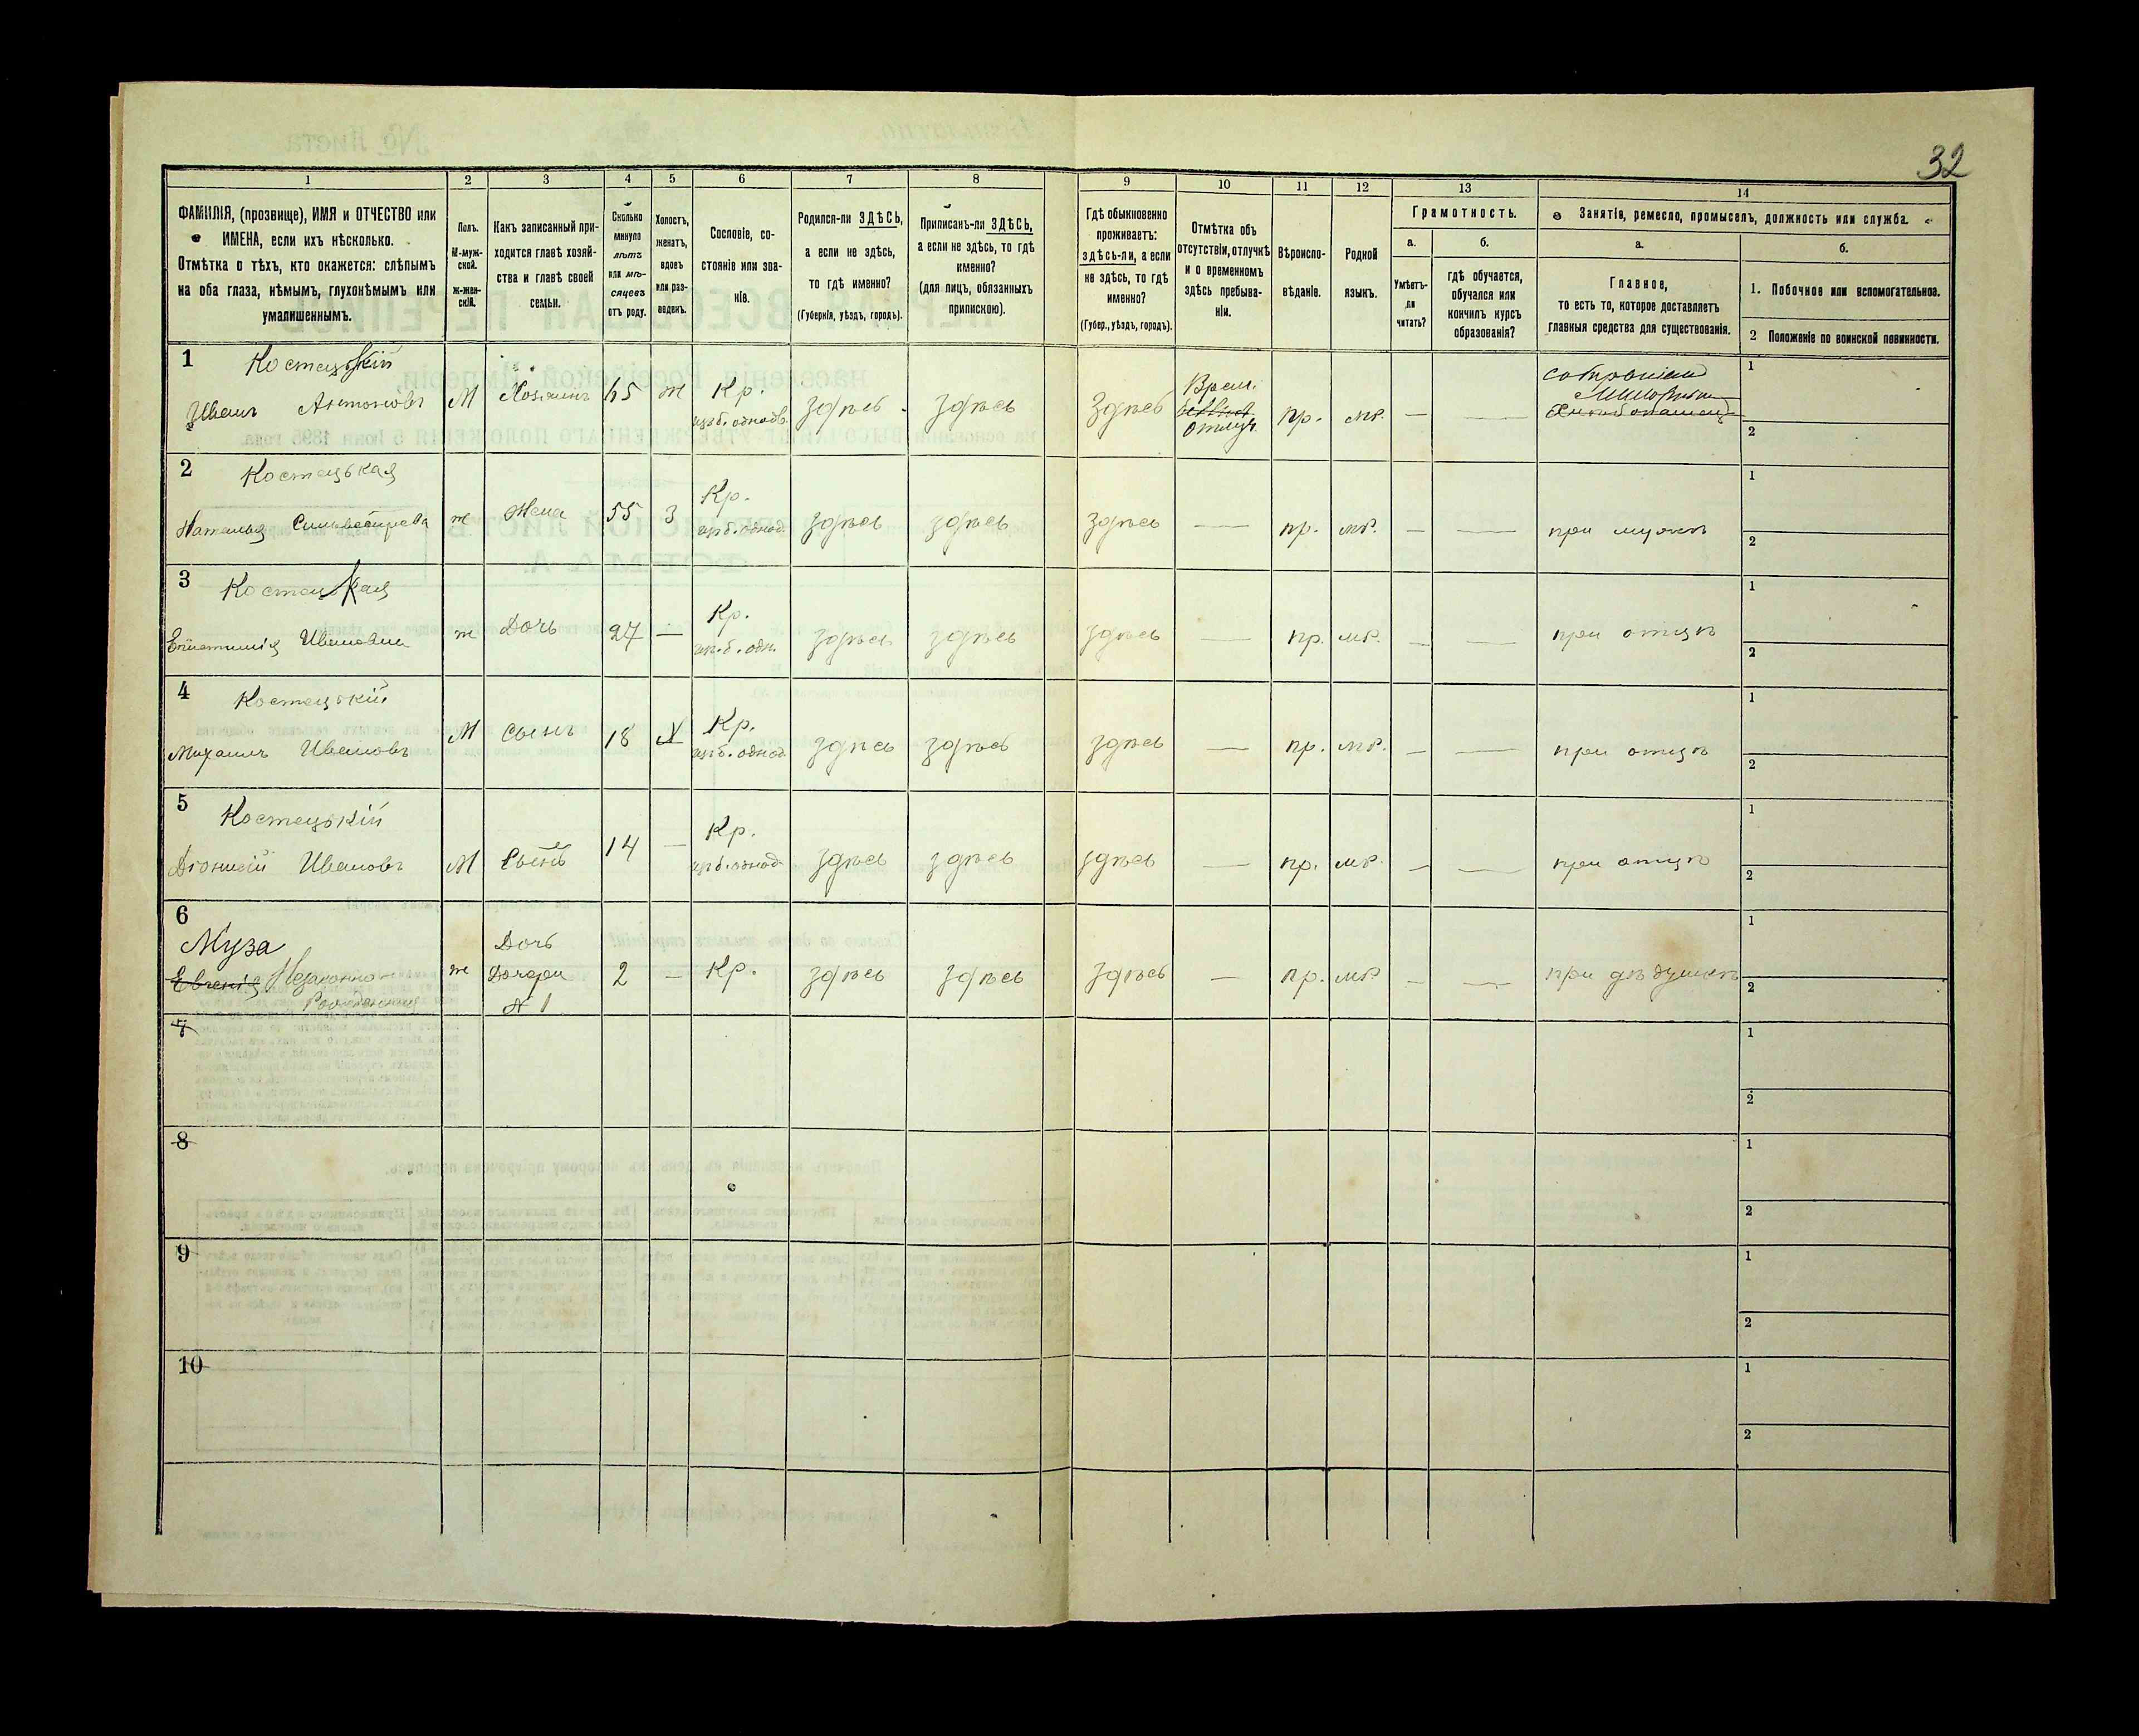 32
1 2 3 4 5 6 7 8 9 10 11 12 13 14
ФАМИЛІЯ, (прозвище), ИМЯ и ОТЧЕСТВО или
ИМЕНА, если ихъ нѣсколько.
Отмѣтка о тѣхъ, кто окажется: слѣпымъ
на оба глаза, нѣмымъ, глухонѣмымъ или
умалишеннымъ.
Полъ.
М-муж-
ской.
Ж-жен-
скій.
Какъ записанный при-
ходится главѣ хозяй-
ства и главѣ своей
семьи.
Сколько
минуло
лѣтъ
или мѣ-
сяцевъ
отъ роду.
Холостъ,
женатъ,
вдовъ
или раз-
веденъ.
Сословіе, со-
стояніе или зва-
ніе.
Родился-ли ЗДѢСЬ,
а если не здѣсь,
то гдѣ именно?
(Губернія, уѣздъ, городъ).
Приписанъ-ли ЗДѢСЬ,
а если не здѣсь, то гдѣ
именно?
(для лицъ, обязанныхъ
припискою).
Гдѣ обыкновенно
проживаетъ:
здѣсь-ли, а если
не здѣсь, то гдѣ
именно?
(Губер., уѣздъ, городъ).
Отмѣтка объ
отсутствіи, отлучкѣ
и о временномъ
здѣсь пребыва-
ніи.
Вѣроиспо-
вѣданіе.
Родной
языкъ.
Грамотность.
а.
Умѣетъ-
ли
читать?
б.
гдѣ обучается,
обучался или
кончилъ курсъ
образованія?
Занятіе, ремесло, промыселъ, должность или служба.
а.
Главное,
то есть то, которое доставляетъ
главныя средства для существованія.
б.
1. Побочное или вспомогательное.
2 Положеніе по воинской повинности.
1 Костецькій
Иванъ Антоновъ М Хозяинъ 65 ж Кр. здѣсь здѣсь здѣсь Врем. отлуч. пр. мр. — —
1
2
2 Костецькая
Наталья Сильвестрова ж Жена 55 З Кр. здѣсь здѣсь здѣсь — пр. мр. — — при мужѣ
1
2
3 Костецькая
Ивановна ж Дочь 27 — Кр. здѣсь здѣсь здѣсь — пр. мр. — — при отцѣ
1
2
4 Костецькій
Михаилъ Ивановъ М сынъ 18 Х Кр. здѣсь здѣсь здѣсь — пр. мр. — — при отцѣ
1
2
5 Костецькій
Діонисій Ивановъ М Сынъ 14 — Кр. здѣсь здѣсь здѣсь — пр. мр. — — при отцѣ
1
2
6
Муза
Евгенія Незаконно-
Рожденная ж Дочь
Дочери
№ 1 2 — Кр. здѣсь здѣсь здѣсь — пр. мр. — — при дѣдушкѣ
1
2
7
1
2
8
1
2
9
1
2
10
1
2